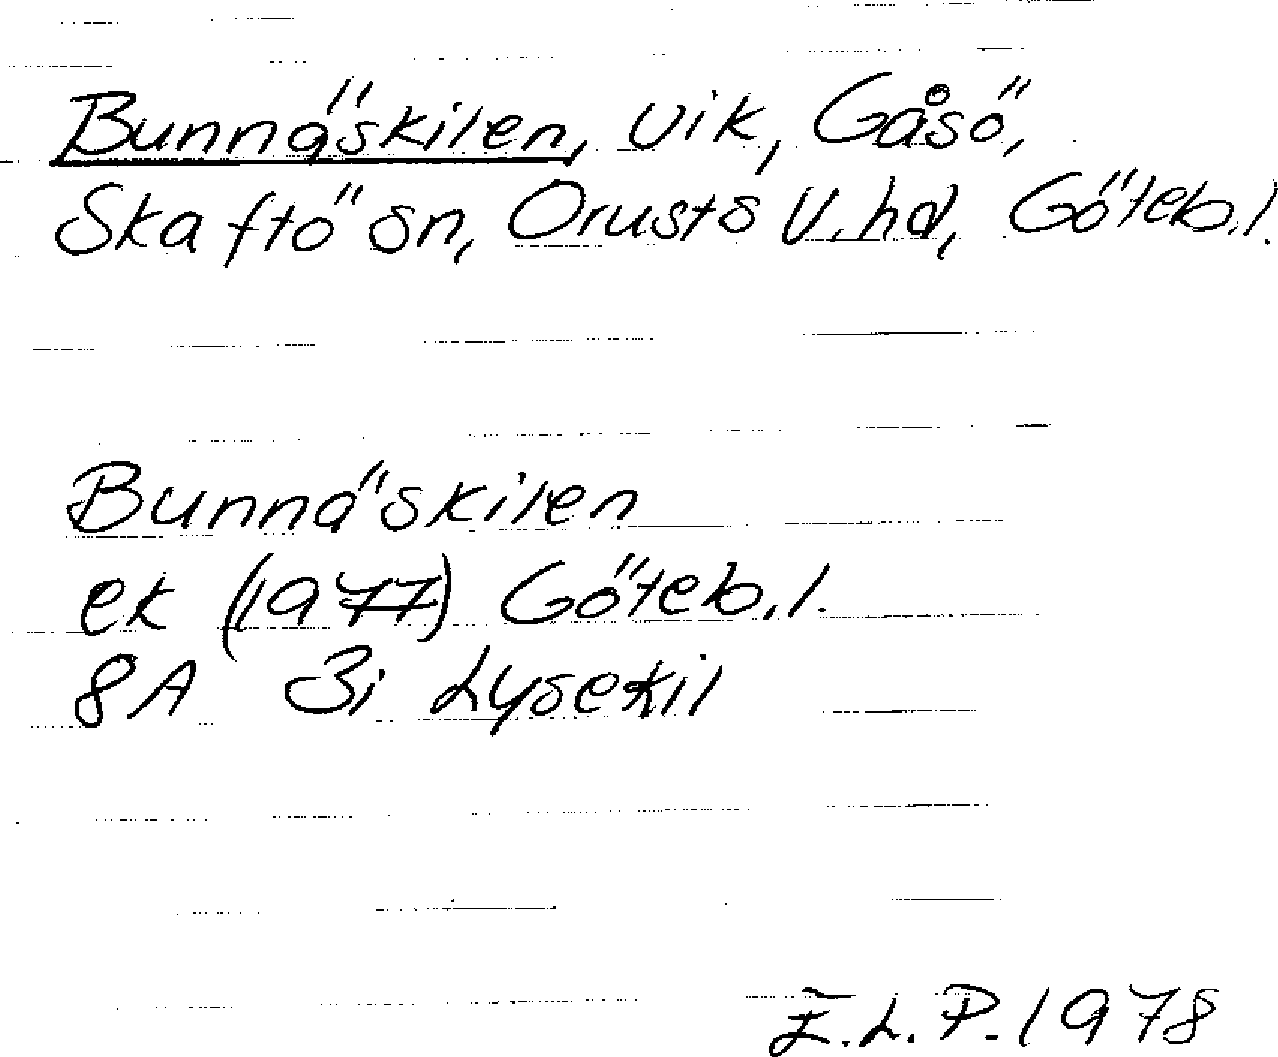 Bunnäskilen, vik, Gåsö,
Skaftö sn, Orusts V. hd, Göteb. l.
Bunnäskilen
ek (1977) Göteb. l.
8A 3i Lysekil
E.L.P. 1978